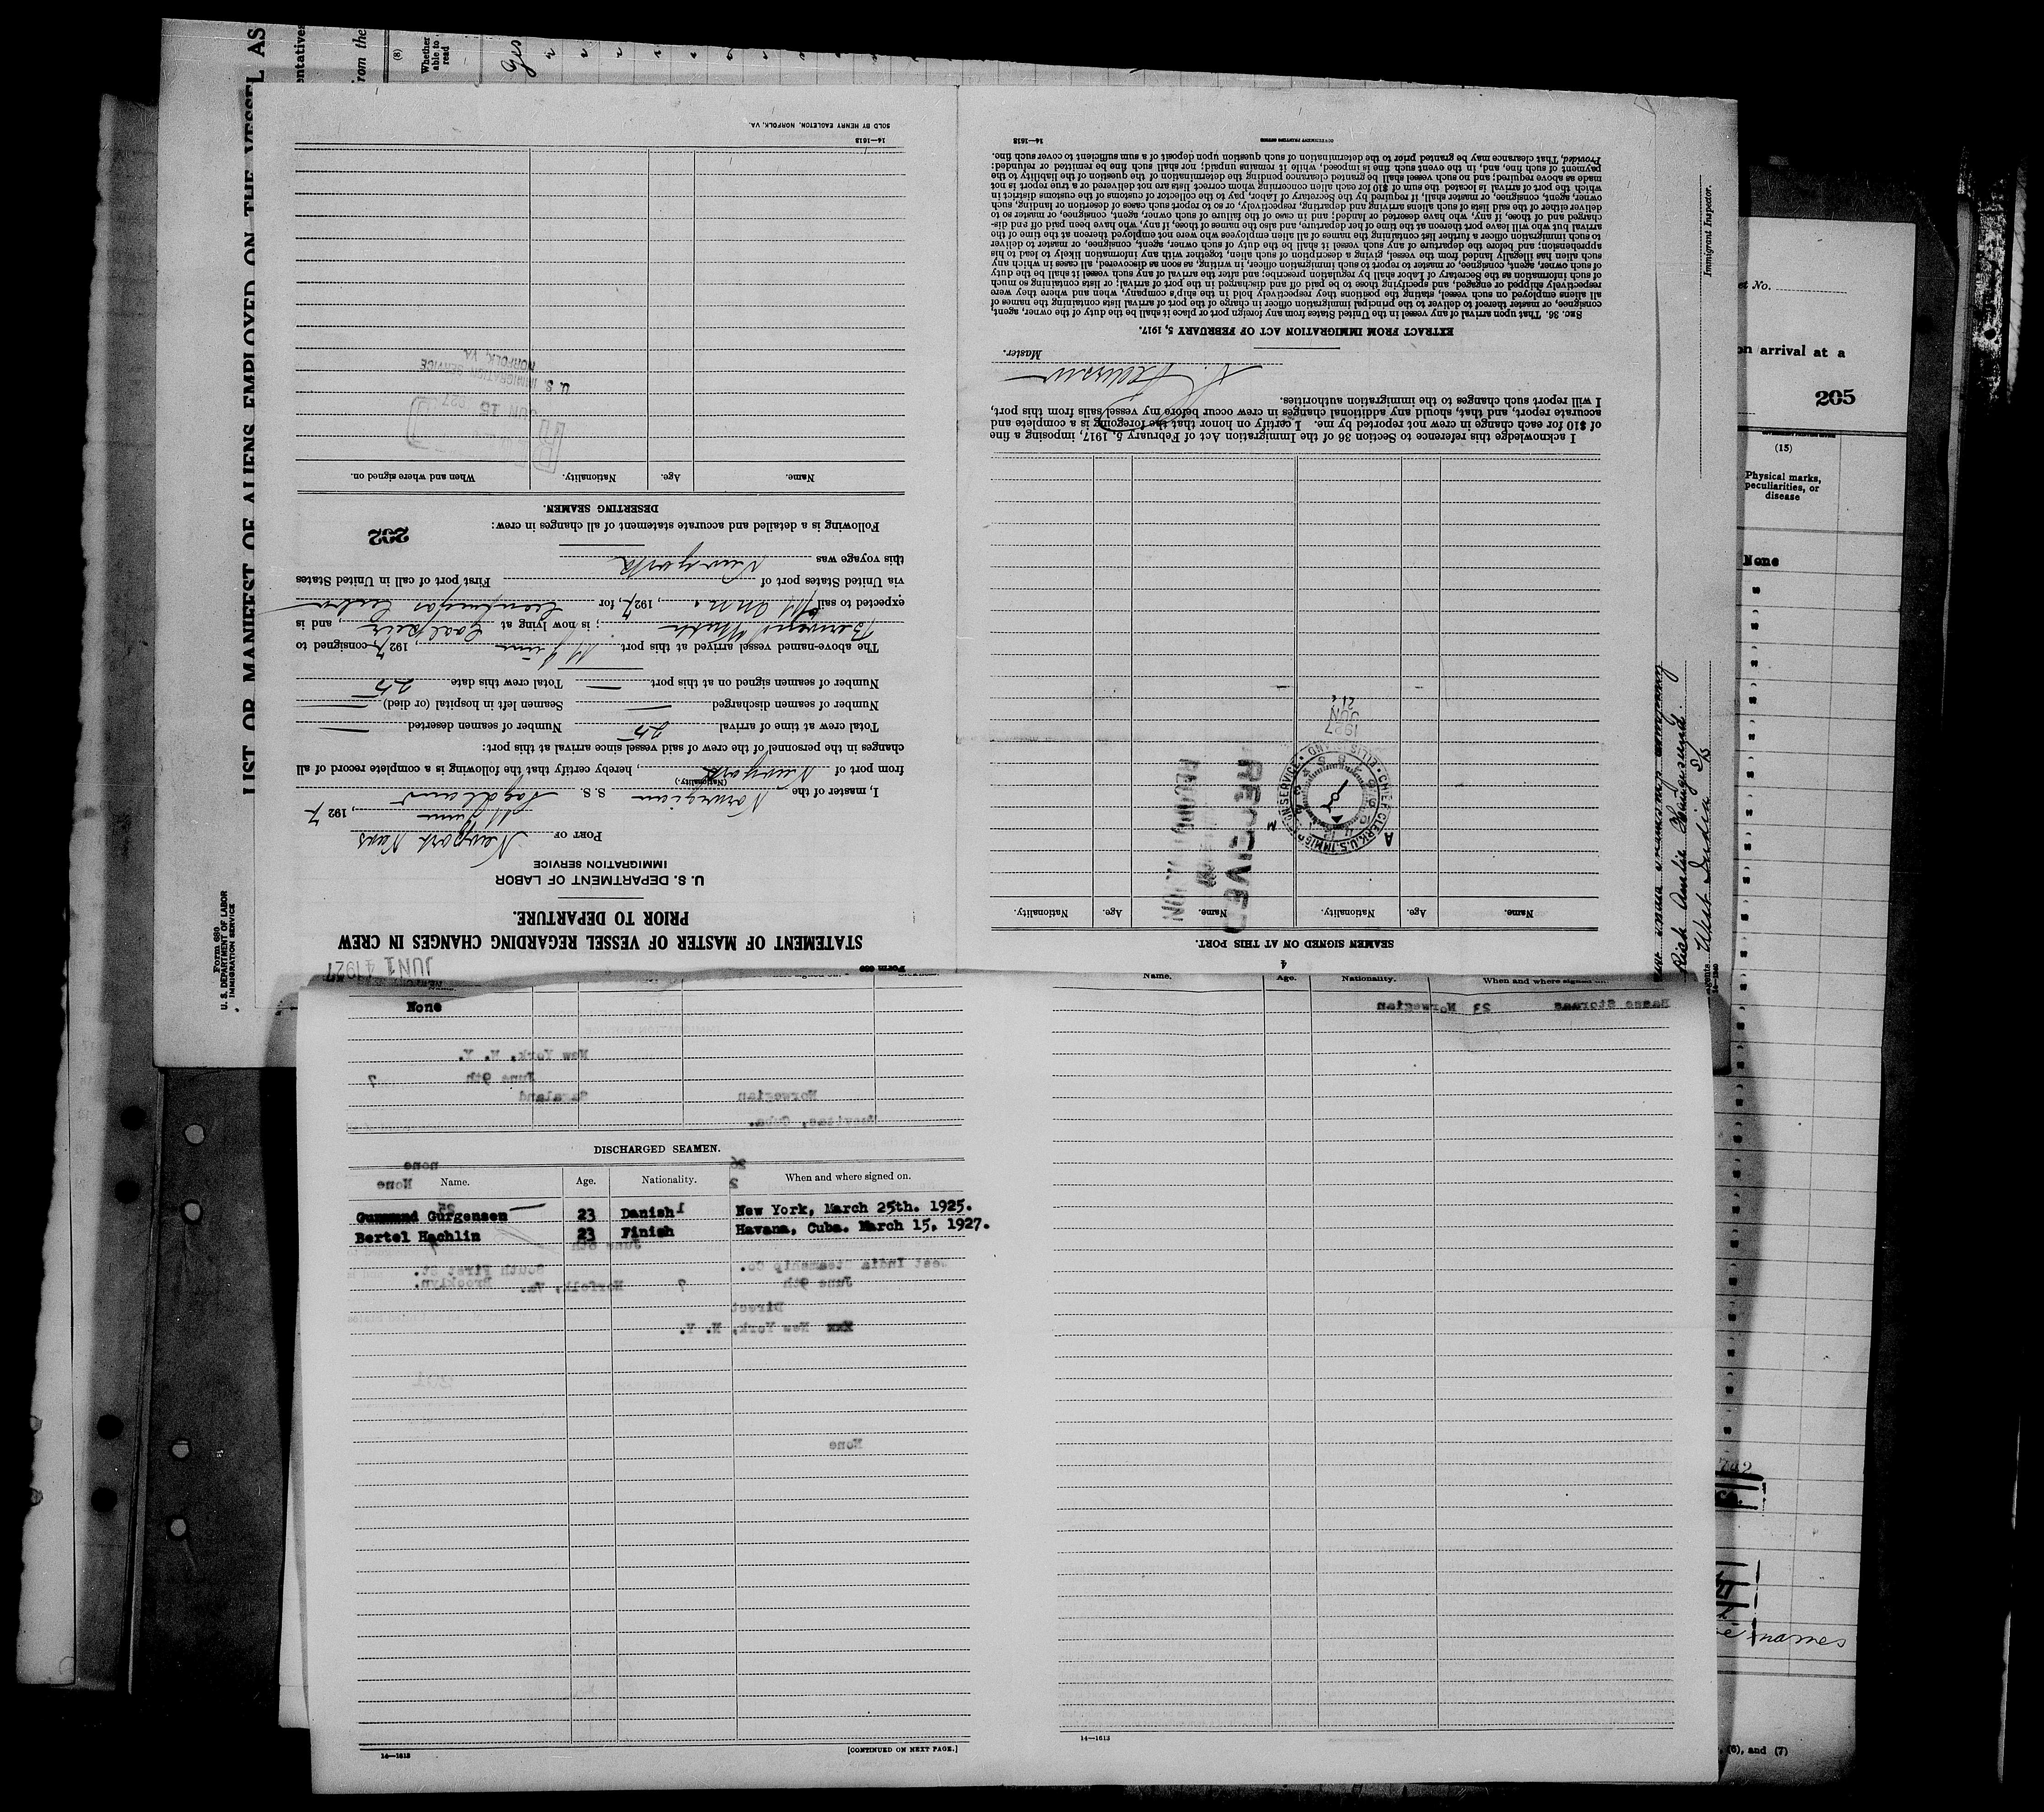 LIST OR MANIFEST OF ALIENS EMPLOYED ON THE VESSEL AS
entatives
rom the
(8)
Whether able to read
yes
Form 680
U. S. DEPARTMENT OF LABOR
IMMIGRATION SERVICE
JUN 14 1927
Form 689
STATEMENT OF MASTER OF VESSEL REGARDING CHANGES IN CREW
PRIOR TO DEPARTURE.
U. S. DEPARTMENT OF LABOR
IMMIGRATION SERVICE
PORT OF Newport News
June, 1927
I, master of the Norwegian S. S. Sagaland
(Nationality.)
from port of Newyork, hereby certify that the following is a complete record of all
changes in the personnel of the crew of said vessel since arrival at this port:
Total crew at time of arrival 25 Number of seamen deserted —
Number of seamen discharged — Seamen left in hospital (or died) —
Number of seamen signed on at this port — Total crew this date 25
The above-named vessel arrived at this port 11 June, 1927 consigned to
; is now lying at Coalpier and is
expected to sail, 1927, for Cienfuegos Cuba
via United States port of First port of call in United States
this voyage was Newyork
Following is a detailed and accurate statement of all changes in crew:
202
DESERTING SEAMEN.
Name. Age. Nationality. When and where signed on.
JUN 15 1927
U. S. IMMIGRATION SERVICE
NORFOLK, VA.
14—1613
SOLD BY HENRY EAGLETON, NORFOLK, VA.
4
SEAMEN SIGNED ON AT THIS PORT.
Name. Age. Nationality. Name. Age. Nationality.
RECEIVED
RECORD DIVISION
CHIEF CLERK, U.S. IMMIGRATION SERVICE • ELLIS ISLAND •
A M
1927
JUN
21
I acknowledge this reference to Section 36 of the Immigration Act of February 5, 1917, imposing a fine
of $10 for each change in crew not reported by me. I certify on honor that the foregoing is a complete and
accurate report, and that, should any additional changes in crew occur before my vessel sails from this port,
I will report such changes to the immigration authorities.
Master.
EXTRACT FROM IMMIGRATION ACT OF FEBRUARY 5, 1917.
SEC. 36. That upon arrival of any vessel in the United States from any foreign port or place it shall be the duty of the owner, agent,
consignee, or master thereof to deliver to the principal immigration officer in charge of the port of arrival lists containing the names of
all aliens employed on such vessel, stating the positions they respectively hold in the ship's company, when and where they were
respectively shipped or engaged, and specifying those to be paid off and discharged in the port of arrival; or lists containing so much
of such information as the Secretary of Labor shall by regulation prescribe; and after the arrival of any such vessel it shall be the duty
of such owner, agent, consignee, or master to report to such immigration officer, in writing, as soon as discovered, all cases in which any
such alien has illegally landed from the vessel, giving a description of such alien, together with any information likely to lead to his
apprehension; and before the departure of any such vessel it shall be the duty of such owner, agent, consignee, or master to deliver
to such immigration officer a further list containing the names of all alien employees who were not employed thereon at the time of the
arrival but who will leave port thereon at the time of her departure, and also the names of those, if any, who have been paid off and dis-
charged and of those, if any, who have deserted or landed; and in case of the failure of such owner, agent, consignee, or master so to
deliver either of the said lists of such aliens arriving and departing, respectively, or so to report such cases of desertion or landing, such
owner, agent, consignee, or master shall, if required by the Secretary of Labor, pay to the collector of customs of the customs district in
which the port of arrival is located the sum of $10 for each alien concerning whom correct lists are not delivered or a true report is not
made as above required; and no such vessel shall be granted clearance pending the determination of the question of the liability to the
payment of such fine, and, in the event such fine is imposed, while it remains unpaid; nor shall such fine be remitted or refunded:
Provided, That clearance may be granted prior to the determination of such question upon deposit of a sum sufficient to cover such fine.
14—1613
GOVERNMENT PRINTING OFFICE
Immigrant Inspector.
West India
agents
14—1240
et No.
on arrival at a
205
(15)
Physical marks, peculiarities, or disease
None
names
(6), and (7)
None
New York, N. Y.
June 9th 7
Norwegian Sagaland
Manvitas, Cuba.
DISCHARGED SEAMEN.
none
26
None
2
Name. Age. Nationality. When and where signed on.
25 1
Gunmund Gurgensen 23 Danish New York, March 25th. 1925.
Bertel Hachlin 23 Finish Havana, Cuba. March 15, 1927.
June 8th
West India Steamship Co. South First St.
Brooklyn.
June 9th 7 Norfolk, Va.
Direct
New York, N. Y.
201
None
14—1613
[CONTINUED ON NEXT PAGE.]
Name. Age. Nationality. When and where signed on.
Haase Stormas 23 Norwegian
14—1613